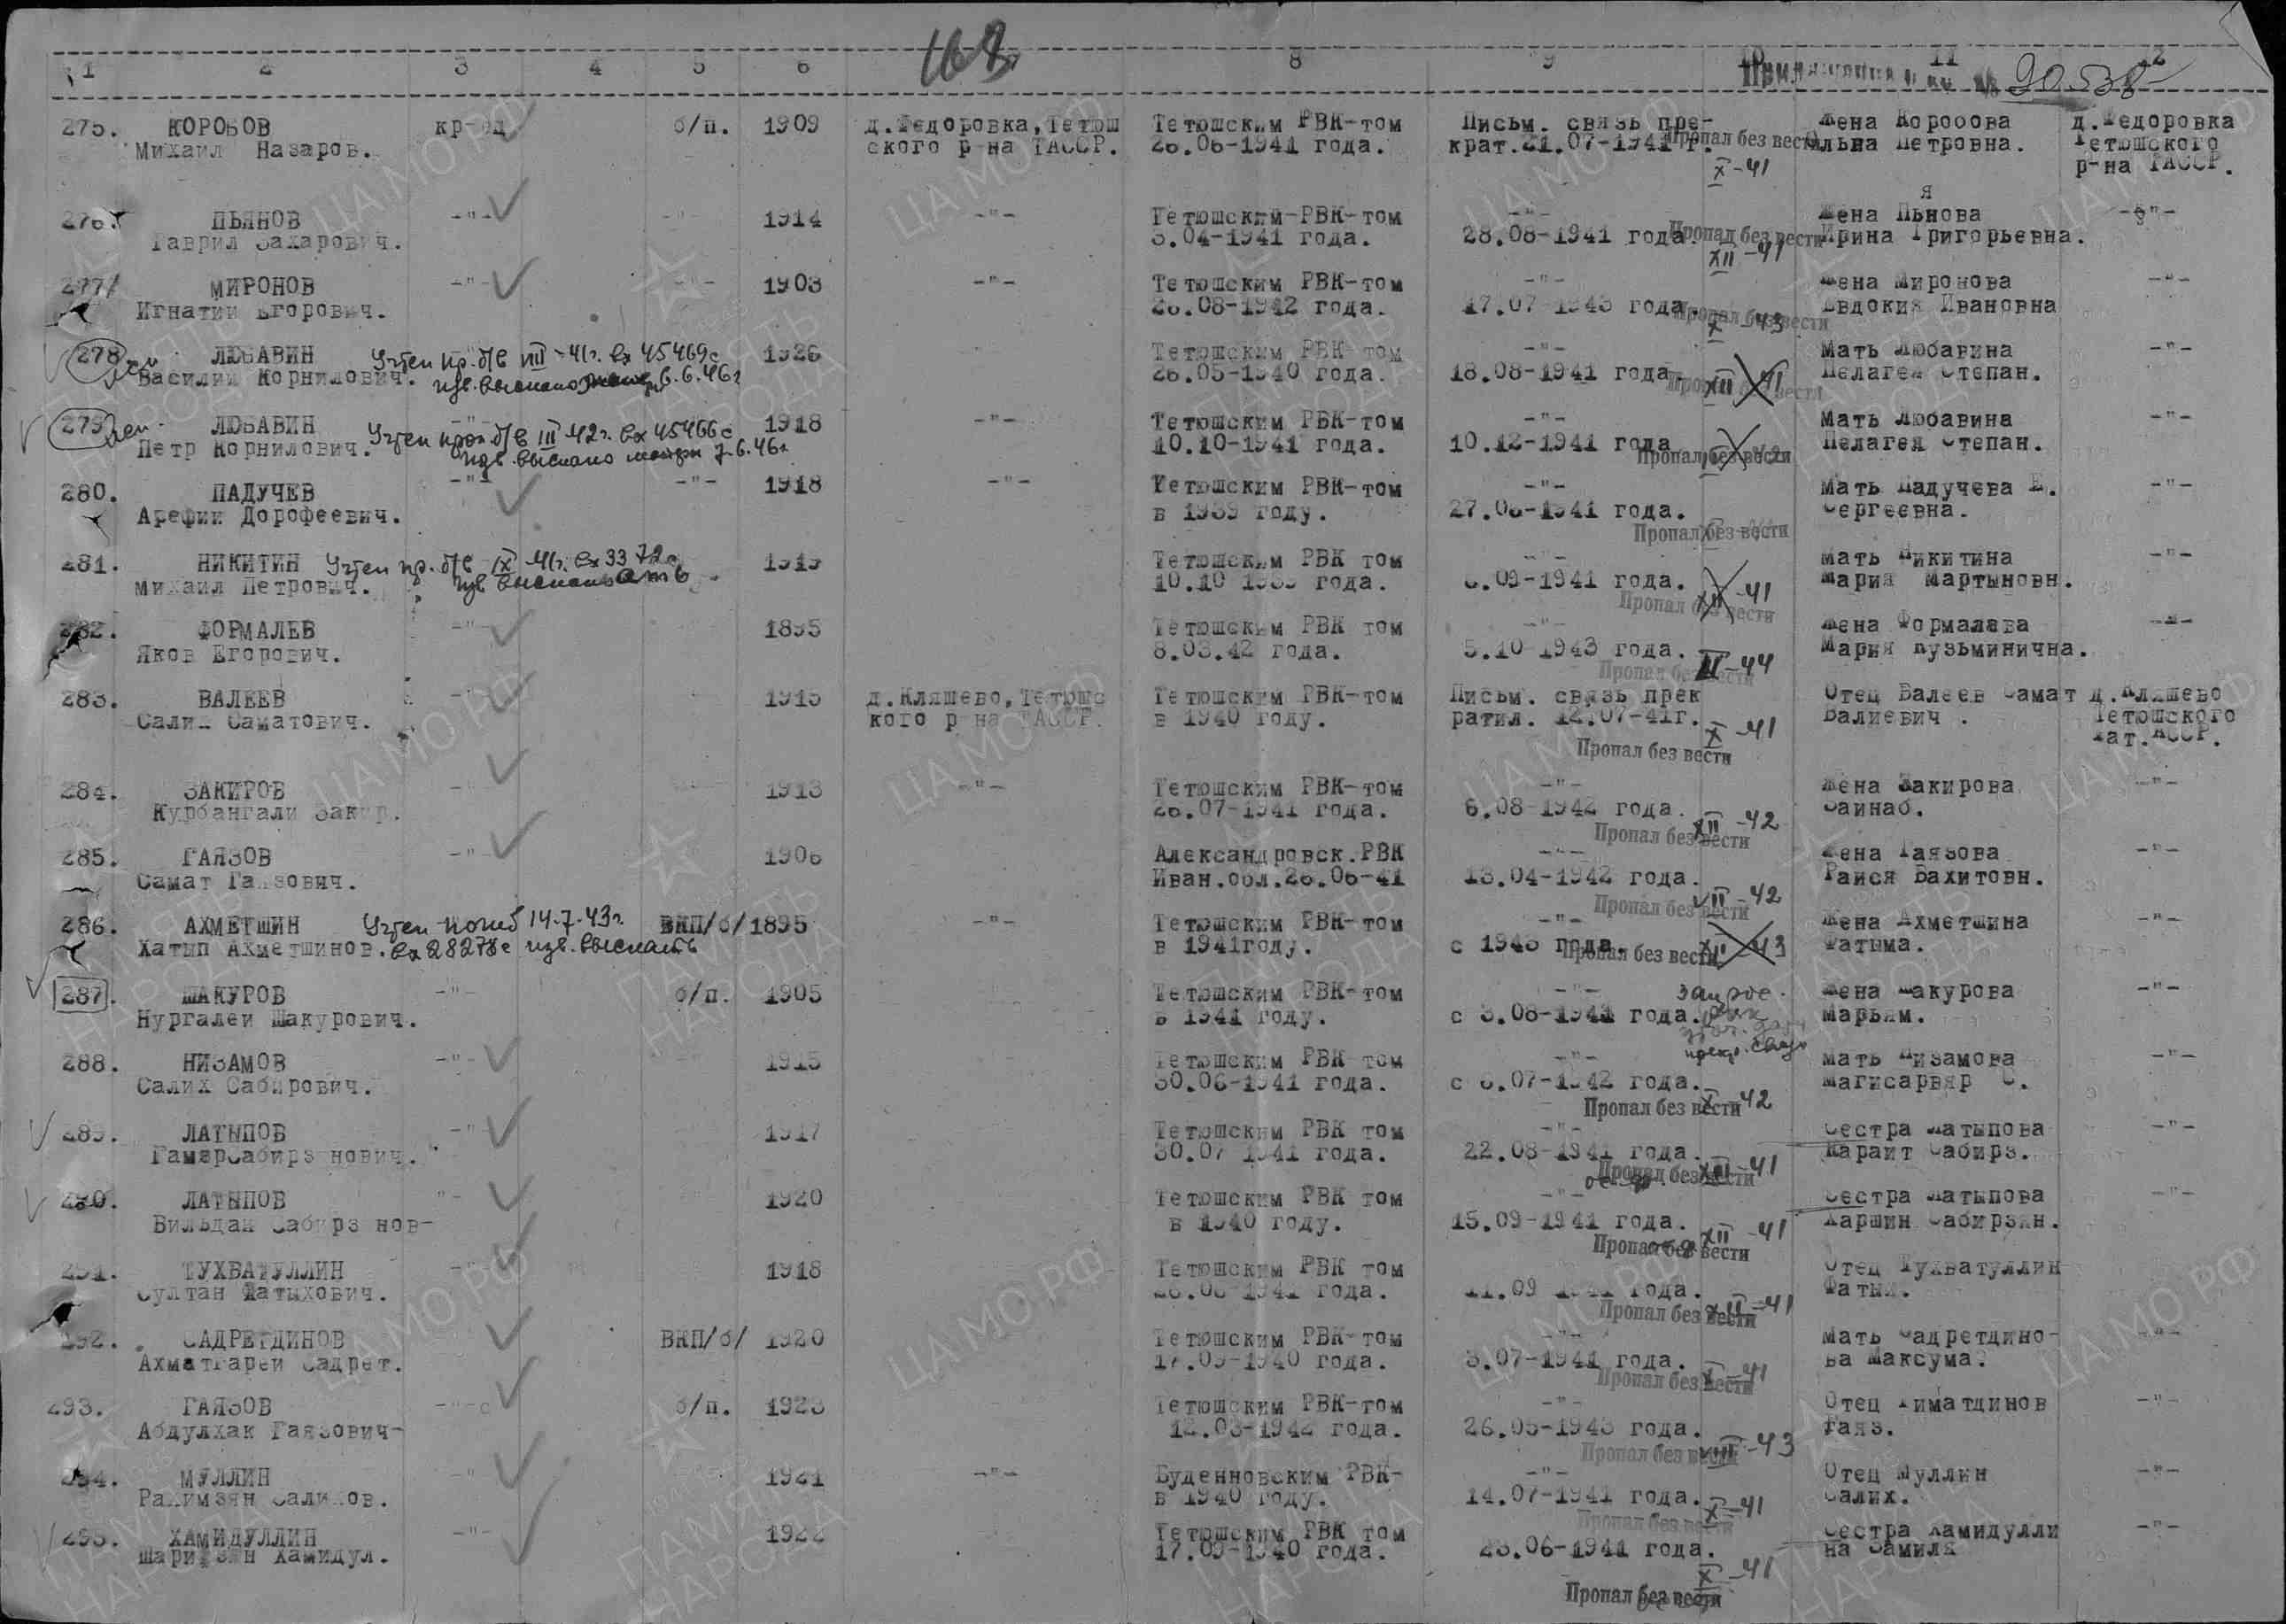 1 2 3 4 5 6 8 9 10 11 2
90538
275. КОРОБОВ кр-ец б/п. 1909 д.Федоровка,Тетюш Тетюшским РВК-том Письм. связь пре- Жена Коробова д.Федоровка
Михаил Назаров. ского р-на ТАССР. 26.06-1941 года. крат.21.07-1941 г. Пропал без вести Петровна. Тетюшского
X-41 р-на ТАССР.
276. ПЬЯНОВ -"- -"- 1914 -"- Тетюшский-РВК-том -"- Жена Пьнова -"-
я
Гаврил Захарович. 3.04-1941 года. 28.08-1941 года. Пропал без вести Ирина Григорьевна.
XII-41
277 МИРОНОВ -"- -"- 1903 -"- Тетюшским РВК-том -"- Жена Миронова -"-
Игнатий Егорович. 26.08-1942 года. 17.07-1943 года. Пропал без вести Евдокия Ивановна
X-43
278 ЛЮБАВИН Учтен пр. б/в VIII-41г. вх 45469с 1926 Тетюшским РВК-том -"- Мать Любавина -"-
Василий Корнилович. изв. выслано 6.6.46г 26.05-1940 года. 18.08-1941 года. Пропал без вести XII 41 Пелагея Степан.
279 ЛЮБАВИН Учтен проп. б/в III-42г. вх 45466с 1918 -"- Тетюшским РВК-том -"- Мать Любавина -"-
Петр Корнилович. изв. выслано матери 7.6.46г 10.10-1941 года. 10.12-1941 года Пропал без вести Пелагея Степан.
280. ПАДУЧЕВ -"- -"- 1918 -"- Тетюшским РВК-том -"- Мать Падучева Е. -"-
Арефий Дорофеевич. в 1939 году. 27.08-1941 года. Сергеевна.
Пропал без вести
281. НИКИТИН Учтен пр. б/в IX-41г. вх 3372с 1919 Тетюшским РВК том -"- Мать Никитина -"-
Михаил Петрович. изв выслать 10.10 1939 года. 6.09-1941 года. Мария Мартыновн.
Пропал без вести XII-41
282. ФОРМАЛЕВ -"- 1895 Тетюшским РВК том -"- Жена Формалева -"-
Яков Егорович. 8.03.42 года. 5.10-1943 года. Мария Кузьминична.
Пропал без вести II-44
283. ВАЛЕЕВ -"- 1915 д.Кляшево,Тетюшс Тетюшским РВК-том Письм. связь прек Отец Валеев Самат д.Кляшево
Салих Саматович. кого р-на ТАССР. в 1940 году. ратил. 12.07-41г. Валиевич. Тетюшского
X-41 Тат.АССР.
Пропал без вести
284. ЗАКИРОВ -"- 1913 -"- Тетюшским РВК-том -"- Жена Закирова -"-
Курбангали Закир. 26.07-1941 года. 6.08-1942 года. Зайнаб.
Пропал без вести XII-42
285. ГАЯЗОВ -"- 1906 Александровск.РВК -"- Жена Гаязова -"-
Самат Гаязович. Иван.обл.26.06-41 13.04-1942 года. Раися Вахитовн.
Пропал без вести VII-42
286. АХМЕТШИН Учтен погиб 14.7.43г. ВКП/б/ 1895 -"- Тетюшским РВК-том -"- Жена Ахметшина -"-
Хатып Ахметшинов. вх 28278с изв. выслать в 1941году. с 1943 года. Пропал без вести XII-43 Фатыма.
287. ШАКУРОВ -"- б/п. 1905 Тетюшским РВК-том -"- Жена Шакурова -"-
Нургалей Шакурович. в 1941 году. с 3.08-1941 года. Марьям.
288. НИЗАМОВ -"- 1915 Тетюшским РВК том -"- Мать Низамова -"-
Салих Сабирович. 30.06-1941 года. с 6.07-1942 года. Магисарвяр С.
Пропал без вести X-42
289. ЛАТЫПОВ -"- 1917 Тетюшским РВК том -"- Сестра Латыпова -"-
30.07 1941 года. 22.08-1941 года. Караит Сабирз.
Пропал без вести XII-41
290. ЛАТЫПОВ "- 1920 Тетюшским РВК том -"- Сестра Латыпова -"-
Вильдан Сабирз нов- в 1940 году. 15.09-1941 года. Каршин Сабирзян.
Пропал без вести XII-41
291. ТУХВАТУЛЛИН -"- 1918 Тетюшским РВК том Отец Тухватуллин
Султан Фатыхович. 11.09 1941 года. Фатых.
Пропал без вести XII-41
292. САДРЕТДИНОВ ВКП/б/ 1920 Тетюшским РВК-том -"- Мать Садретдино- -"-
Ахматгарей Садрет. 17.09-1940 года. 3.07-1941 года. ва Максума.
Пропал без вести X-41
293. ГАЯЗОВ -"- б/п. 1923 Тетюшским РВК-том -"- Отец Химатдинов -"-
Абдулхак Гаязович- 12.03-1942 года. 26.05-1943 года. Гаяз.
Пропал без вести VIII-43
294. МУЛЛИН -"- 1921 -"- Буденновским РВК- -"- Отец Муллин -"-
Рахимзян Салихов. в 1940 году. 14.07-1941 года. Салих.
Пропал без вести X-41
295. ХАМИДУЛЛИН -"- 1922 Тетюшским РВК том Сестра Хамидулли -"-
Шарифзян Хамидул. 17.09-1940 года. 23.06-1941 года. на Замиля
X-41
Пропал без вести